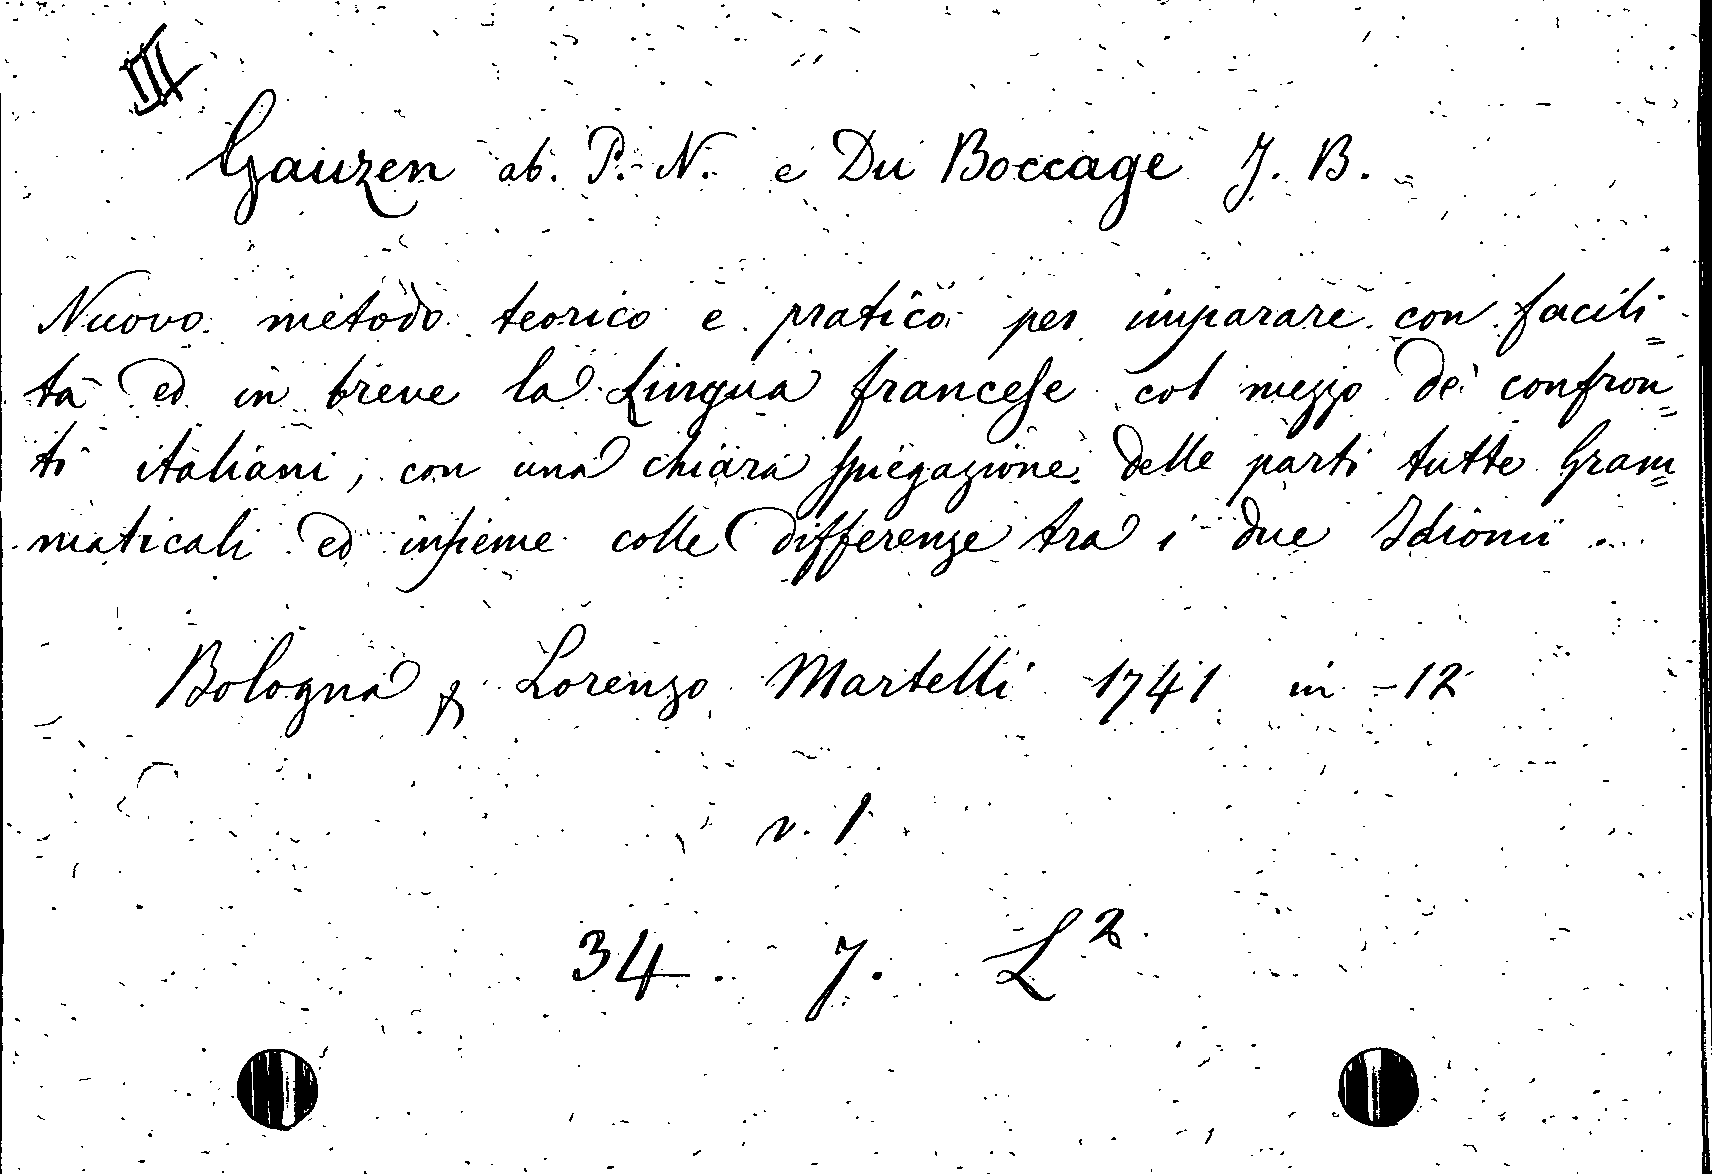 III
Gauzen ab. P. N. e Du Boccage J. B.
Nuovo metodo teorico e pratico per imparare con facili=
tà ed in breve la Lingua francese col mezzo de' confron=
ti italiani, con una chiara spiegazione delle parti tutte Gram=
maticali ed insieme colle differenze tra i due Idiomi ...
Bologna p. Lorenzo Martelli 1741 in-12
v. 1
34. 7. L²